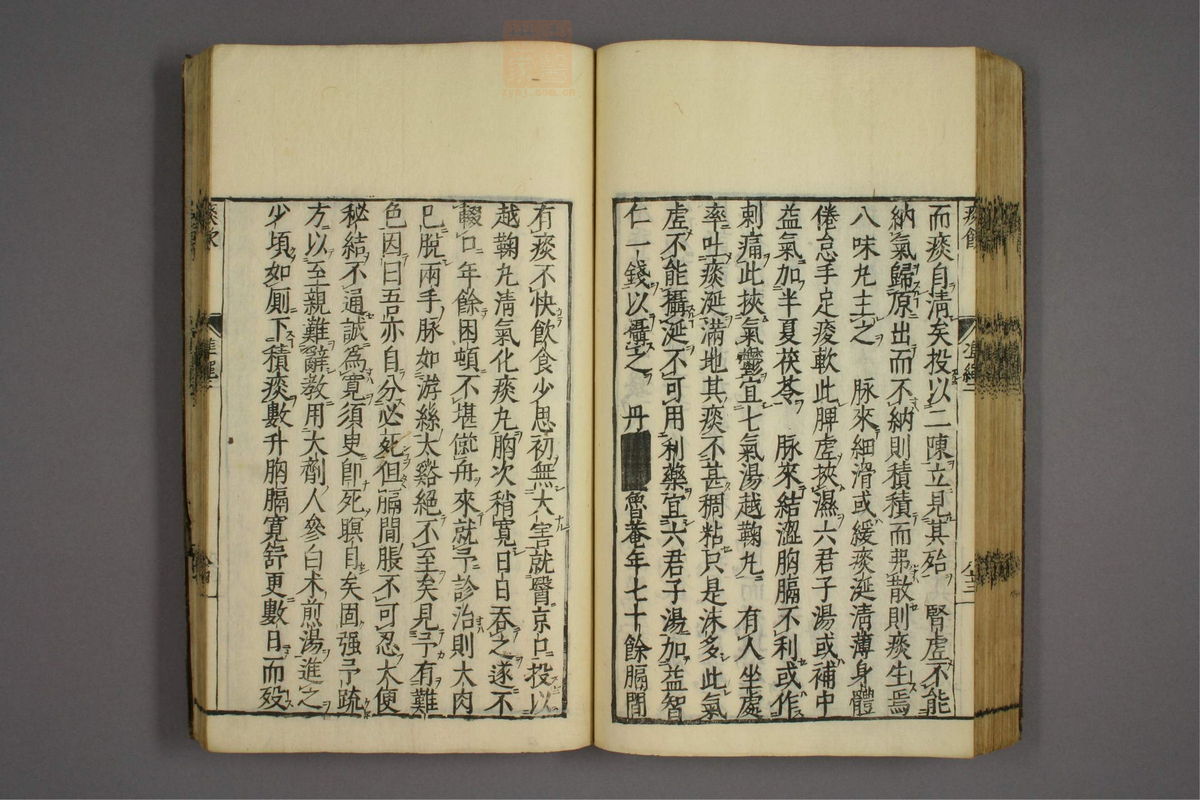 而痰自清矣投以二陳立見其殆 腎虛不能
納氣歸原出而不納則積積而不散則痰生焉
八味丸主之 脉來細滑或緩痰涎清薄身體
倦怠手足痠軟此脾虛挾濕六君子湯或補中
益氣加半夏茯苓 脉來結澀胸膈不利或作
刺痛此挾氣鬱宜七氣湯越鞠丸 有人坐處
率吐痰涎滿地其痰不甚稠粘只是沫多此氣
虛不能攝涎不可用利藥宜六君子湯加益智
仁一錢以攝之 丹 魯菴年七十餘膈間
有痰不快飲食少思初無大害就醫京口投以
越鞠丸清氣化痰丸胸次稍寬日日吞之遂不
輟口年餘困頓不堪僦舟來就予診治則大肉
已脫兩手脉如游絲太谿絕不至矣見予有難
色因曰吾亦自分必死但膈間脹不可忍大便
秘結不通誠為寬須臾卽死瞑目矣固强予疏
方以至親難辭教用大劑人參白术煎湯進之
少頃如厠下積痰數升胸膈寬舒更數日而歿